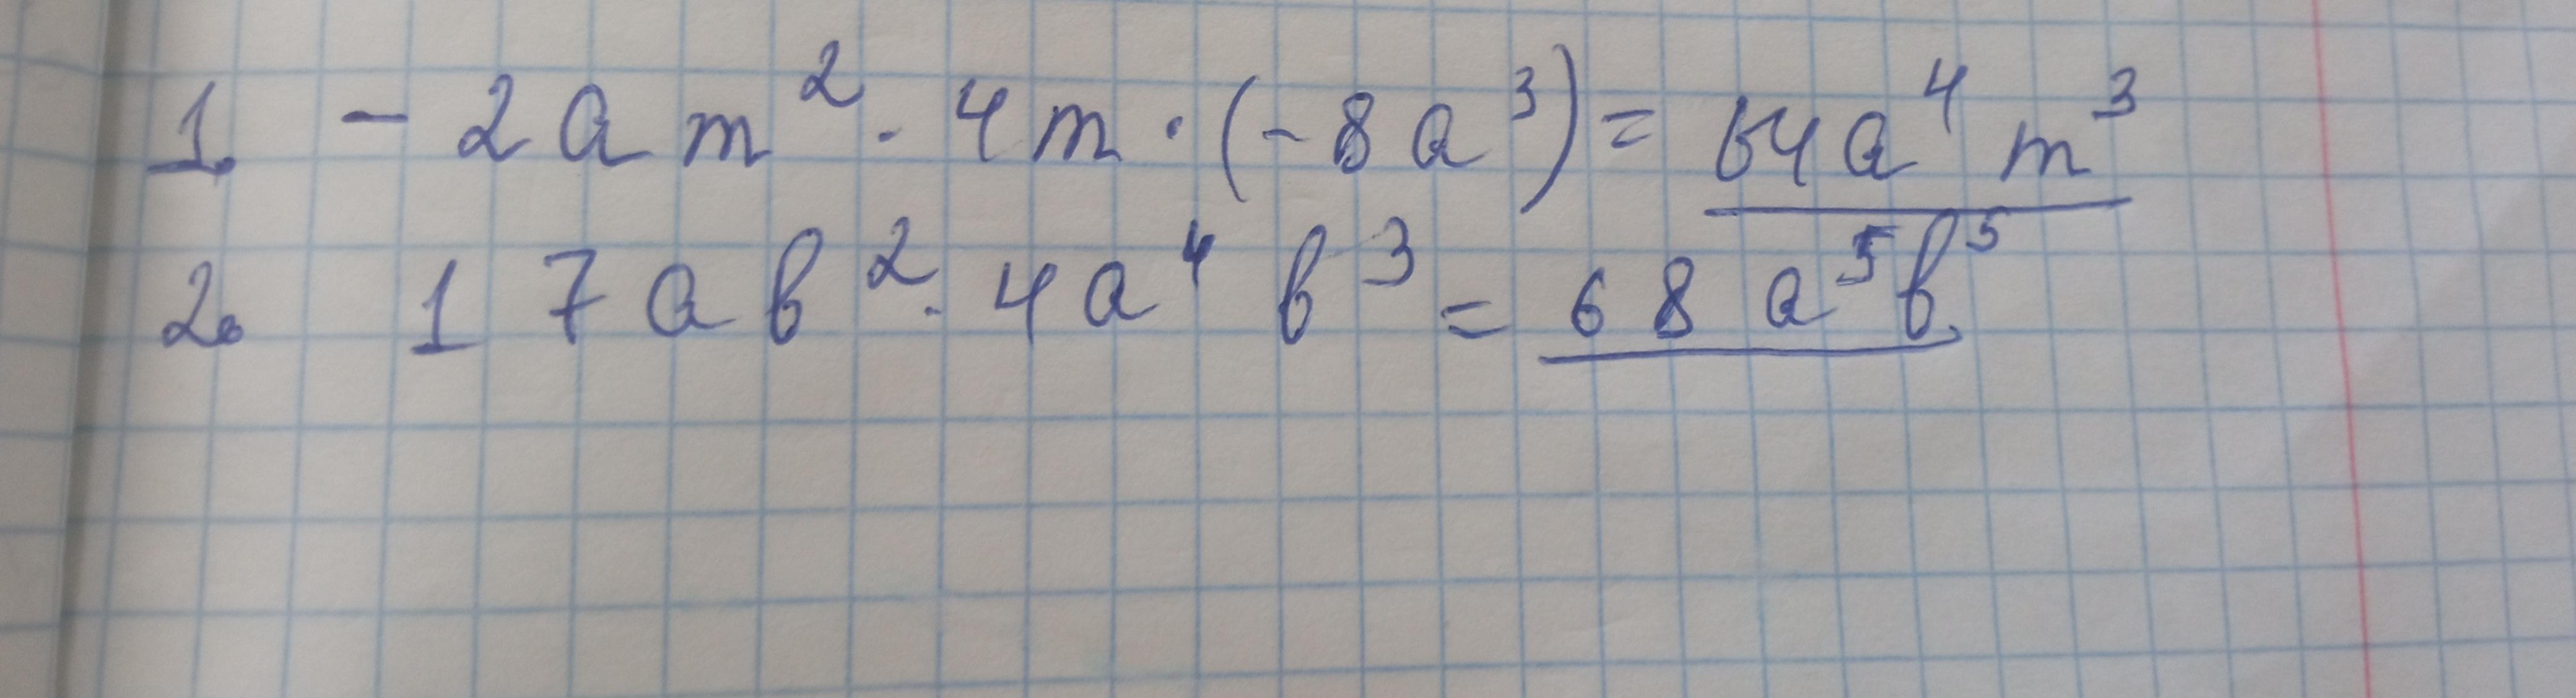 1. - 2am² · 4m · (-8a³) = 64a⁴m³
2. 17ab² · 4a⁴b³ = 68a⁵b⁵